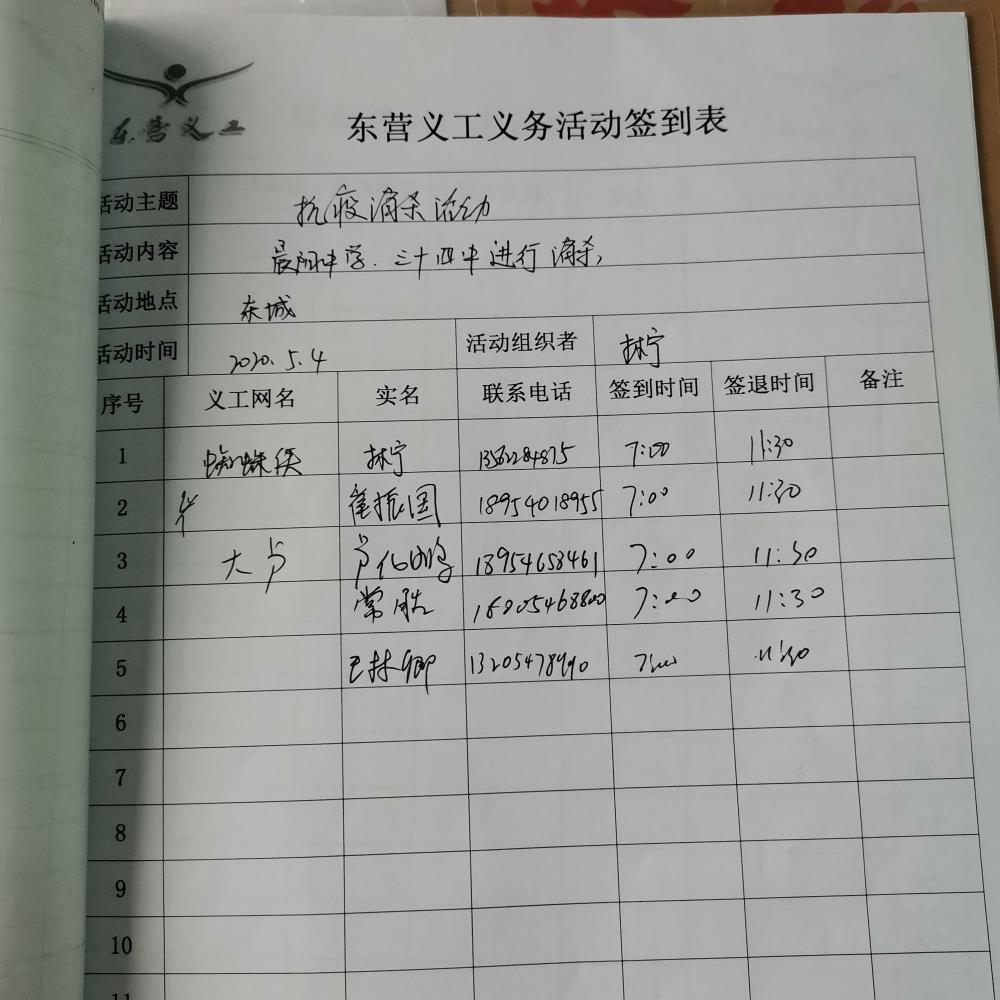 东营义工
东营义工义务活动签到表
活动主题 抗疫消杀活动
活动内容 晨阳中学、三十四中进行消杀,
活动地点 东城
活动时间 2020.5.4 活动组织者 林宁
序号 义工网名 实名 联系电话 签到时间 签退时间 备注
1 蜘蛛侠 林宁 7:00 11:30
2 崔振国 18954018955 7:00 11:30
3 大卢 18954658461 7:00 11:30
4 7:00 11:30
5 13205478990 7:00 11:30
6
7
8
9
10
11